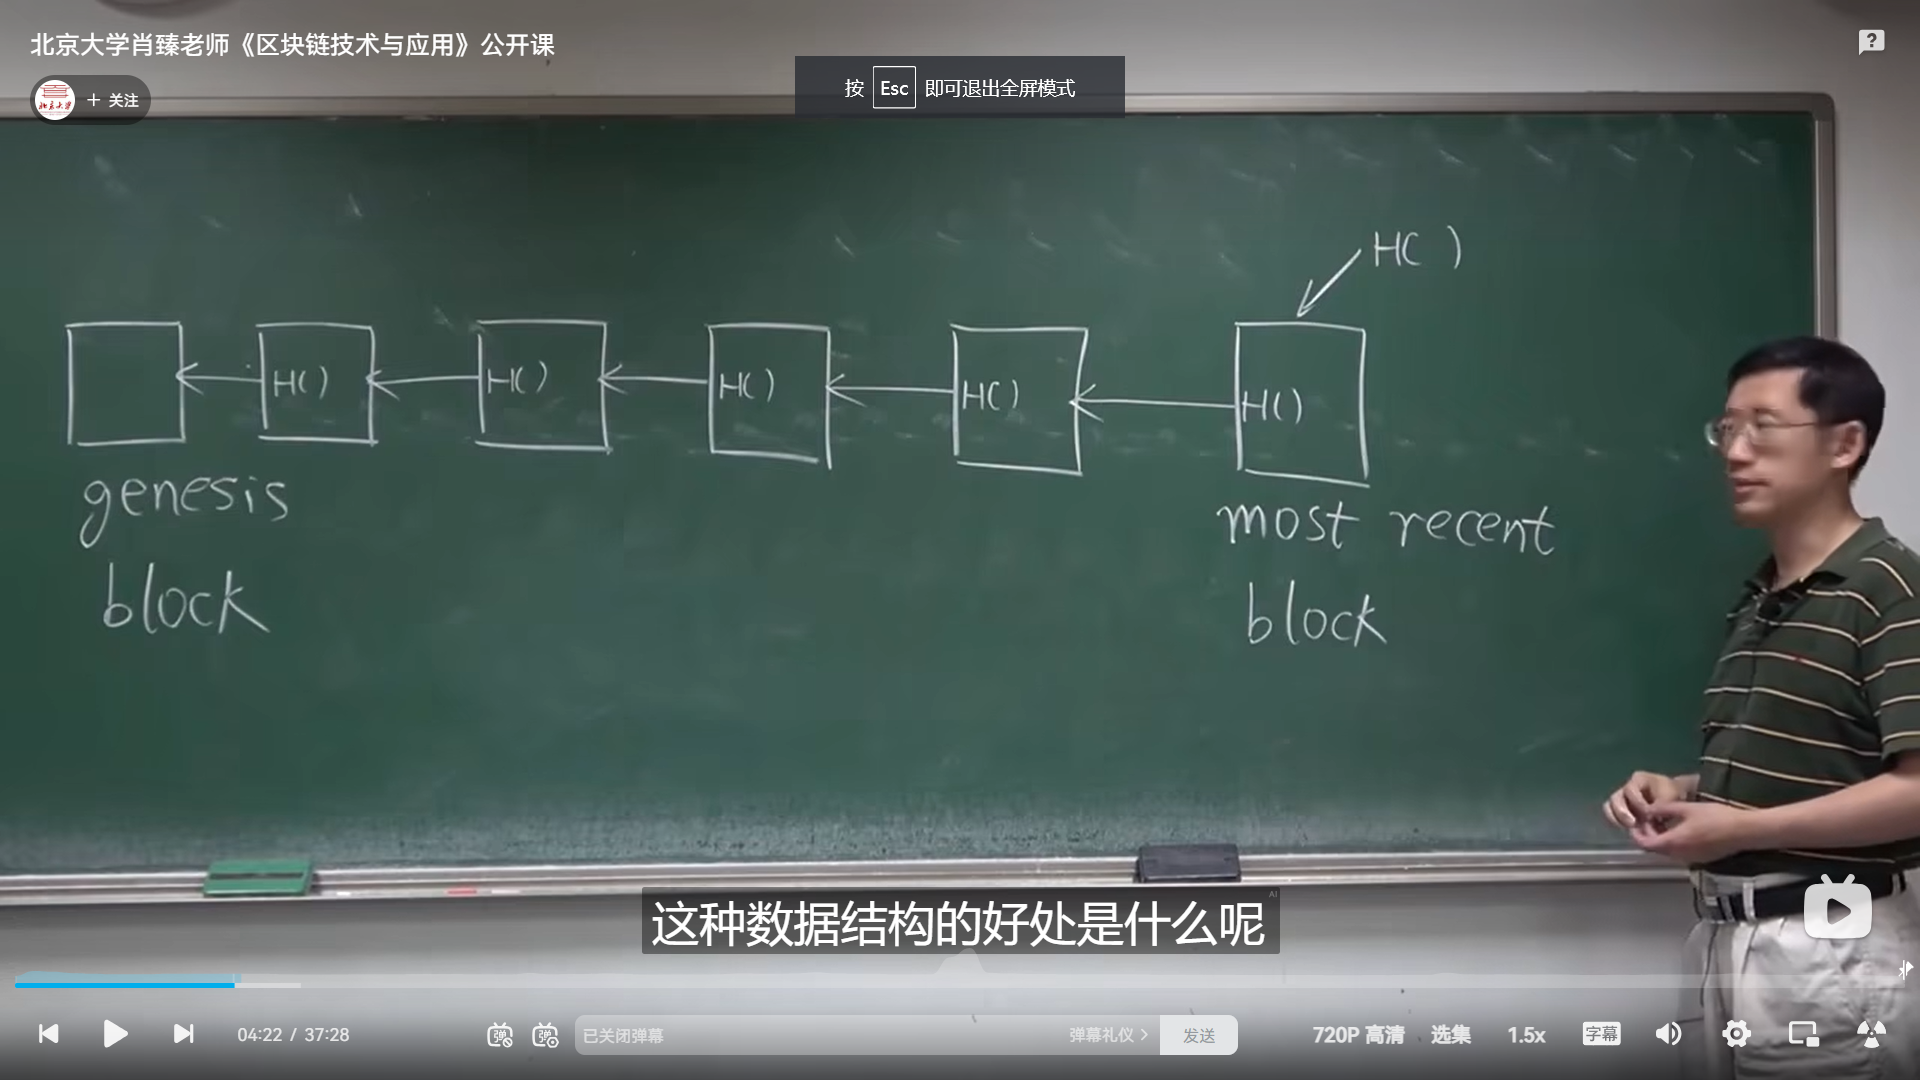 北京大学肖臻老师《区块链技术与应用》公开课
+ 关注
北京大学
按 Esc 即可退出全屏模式
H( )
H( ) H( ) H( ) H( ) H( )
genesis
block
most recent
block
AI
这种数据结构的好处是什么呢
04:22 / 37:28
弹
弹
已关闭弹幕
弹幕礼仪 >
发送
720P 高清
选集
1.5x
字幕